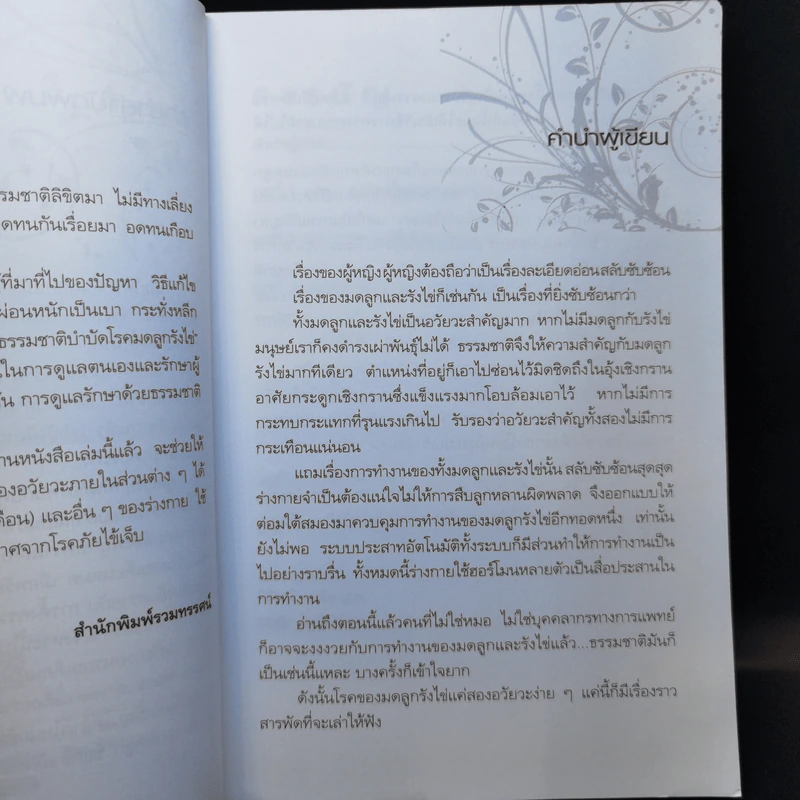 รรมชาติลิขิตมา ไม่มีทางเลี่ยง
ดทนกันเรื่อยมา อดทนเกือบ
ที่มาที่ไปของปัญหา วิธีแก้ไข
ผ่อนหนักเป็นเบา กระทั่งหลีก
ธรรมชาติบำบัดโรคมดลูกรังไข่"
นในการดูแลตนเองและรักษาผู้
น การดูแลรักษาด้วยธรรมชาติ
านหนังสือเล่มนี้แล้ว จะช่วยให้
องอวัยวะภายในส่วนต่าง ๆ ได้
ดือน) และอื่น ๆ ของร่างกาย ใช้
าศจากโรคภัยไข้เจ็บ
สำนักพิมพ์รวมทรรศน์
คำนำผู้เขียน
เรื่องของผู้หญิง ผู้หญิงต้องถือว่าเป็นเรื่องละเอียดอ่อน สลับซับซ้อน
เรื่องของมดลูกและรังไข่ก็เช่นกัน เป็นเรื่องที่ยิ่งซับซ้อนกว่า
ทั้งมดลูกและรังไข่เป็นอวัยวะสำคัญมาก หากไม่มีมดลูกกับรังไข่
มนุษย์เราก็คงดำรงเผ่าพันธุ์ไม่ได้ ธรรมชาติจึงให้ความสำคัญกับมดลูก
รังไข่มากทีเดียว ตำแหน่งที่อยู่ก็เอาไปซ่อนไว้มิดชิดถึงในอุ้งเชิงกราน
อาศัยกระดูกเชิงกรานซึ่งแข็งแรงมากโอบล้อมเอาไว้ หากไม่มีการ
กระทบกระแทกที่รุนแรงเกินไป รับรองว่าอวัยวะสำคัญทั้งสองไม่มีการ
กระเทือนแน่นอน
แถมเรื่องการทำงานของทั้งมดลูกและรังไข่นั้น สลับซับซ้อนสุดสุด
ร่างกายจำเป็นต้องแน่ใจไม่ให้การสืบลูกหลานผิดพลาด จึงออกแบบให้
ต่อมใต้สมองมาควบคุมการทำงานของมดลูกรังไข่อีกทอดหนึ่ง เท่านั้น
ยังไม่พอ ระบบประสาทอัตโนมัติทั้งระบบก็มีส่วนทำให้การทำงานเป็น
ไปอย่างราบรื่น ทั้งหมดนี้ร่างกายใช้ฮอร์โมนหลายตัวเป็นสื่อประสานใน
การทำงาน
อ่านถึงตอนนี้แล้วคนที่ไม่ใช่หมอ ไม่ใช่บุคคลากรทางการแพทย์
ก็อาจจะงงงวยกับการทำงานของมดลูกและรังไข่แล้ว...ธรรมชาติมันก็
เป็นเช่นนี้แหละ บางครั้งก็เข้าใจยาก
ดังนั้นโรคของมดลูกรังไข่แค่สองอวัยวะง่าย ๆ แค่นี้ก็มีเรื่องราว
สารพัดที่จะเล่าให้ฟัง